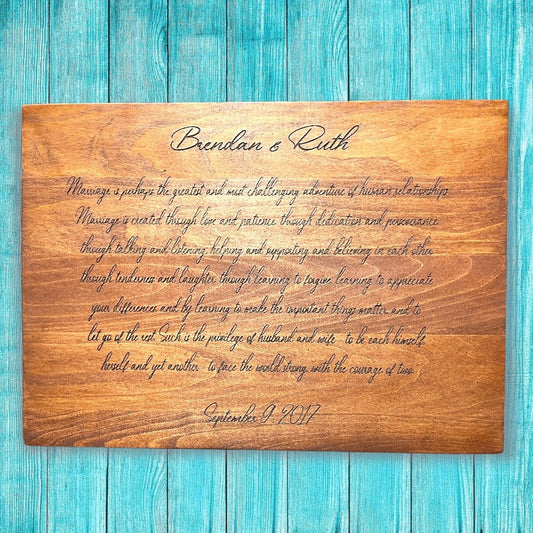 Brendan & Ruth
Marriage is perhaps the greatest and most challenging adventure of human relationships
Marriage is created through love and patience through dedication and perseverance
through talking and listening, helping and supporting and believing in each other
through tenderness and laughter through learning to forgive learning to appreciate
your differences and by learning to make the important things matter, and to
let go of the rest. Such is the privilege of husband and wife - to be each himself,
herself and yet another - to face the world strong, with the courage of two.
September 9, 2017